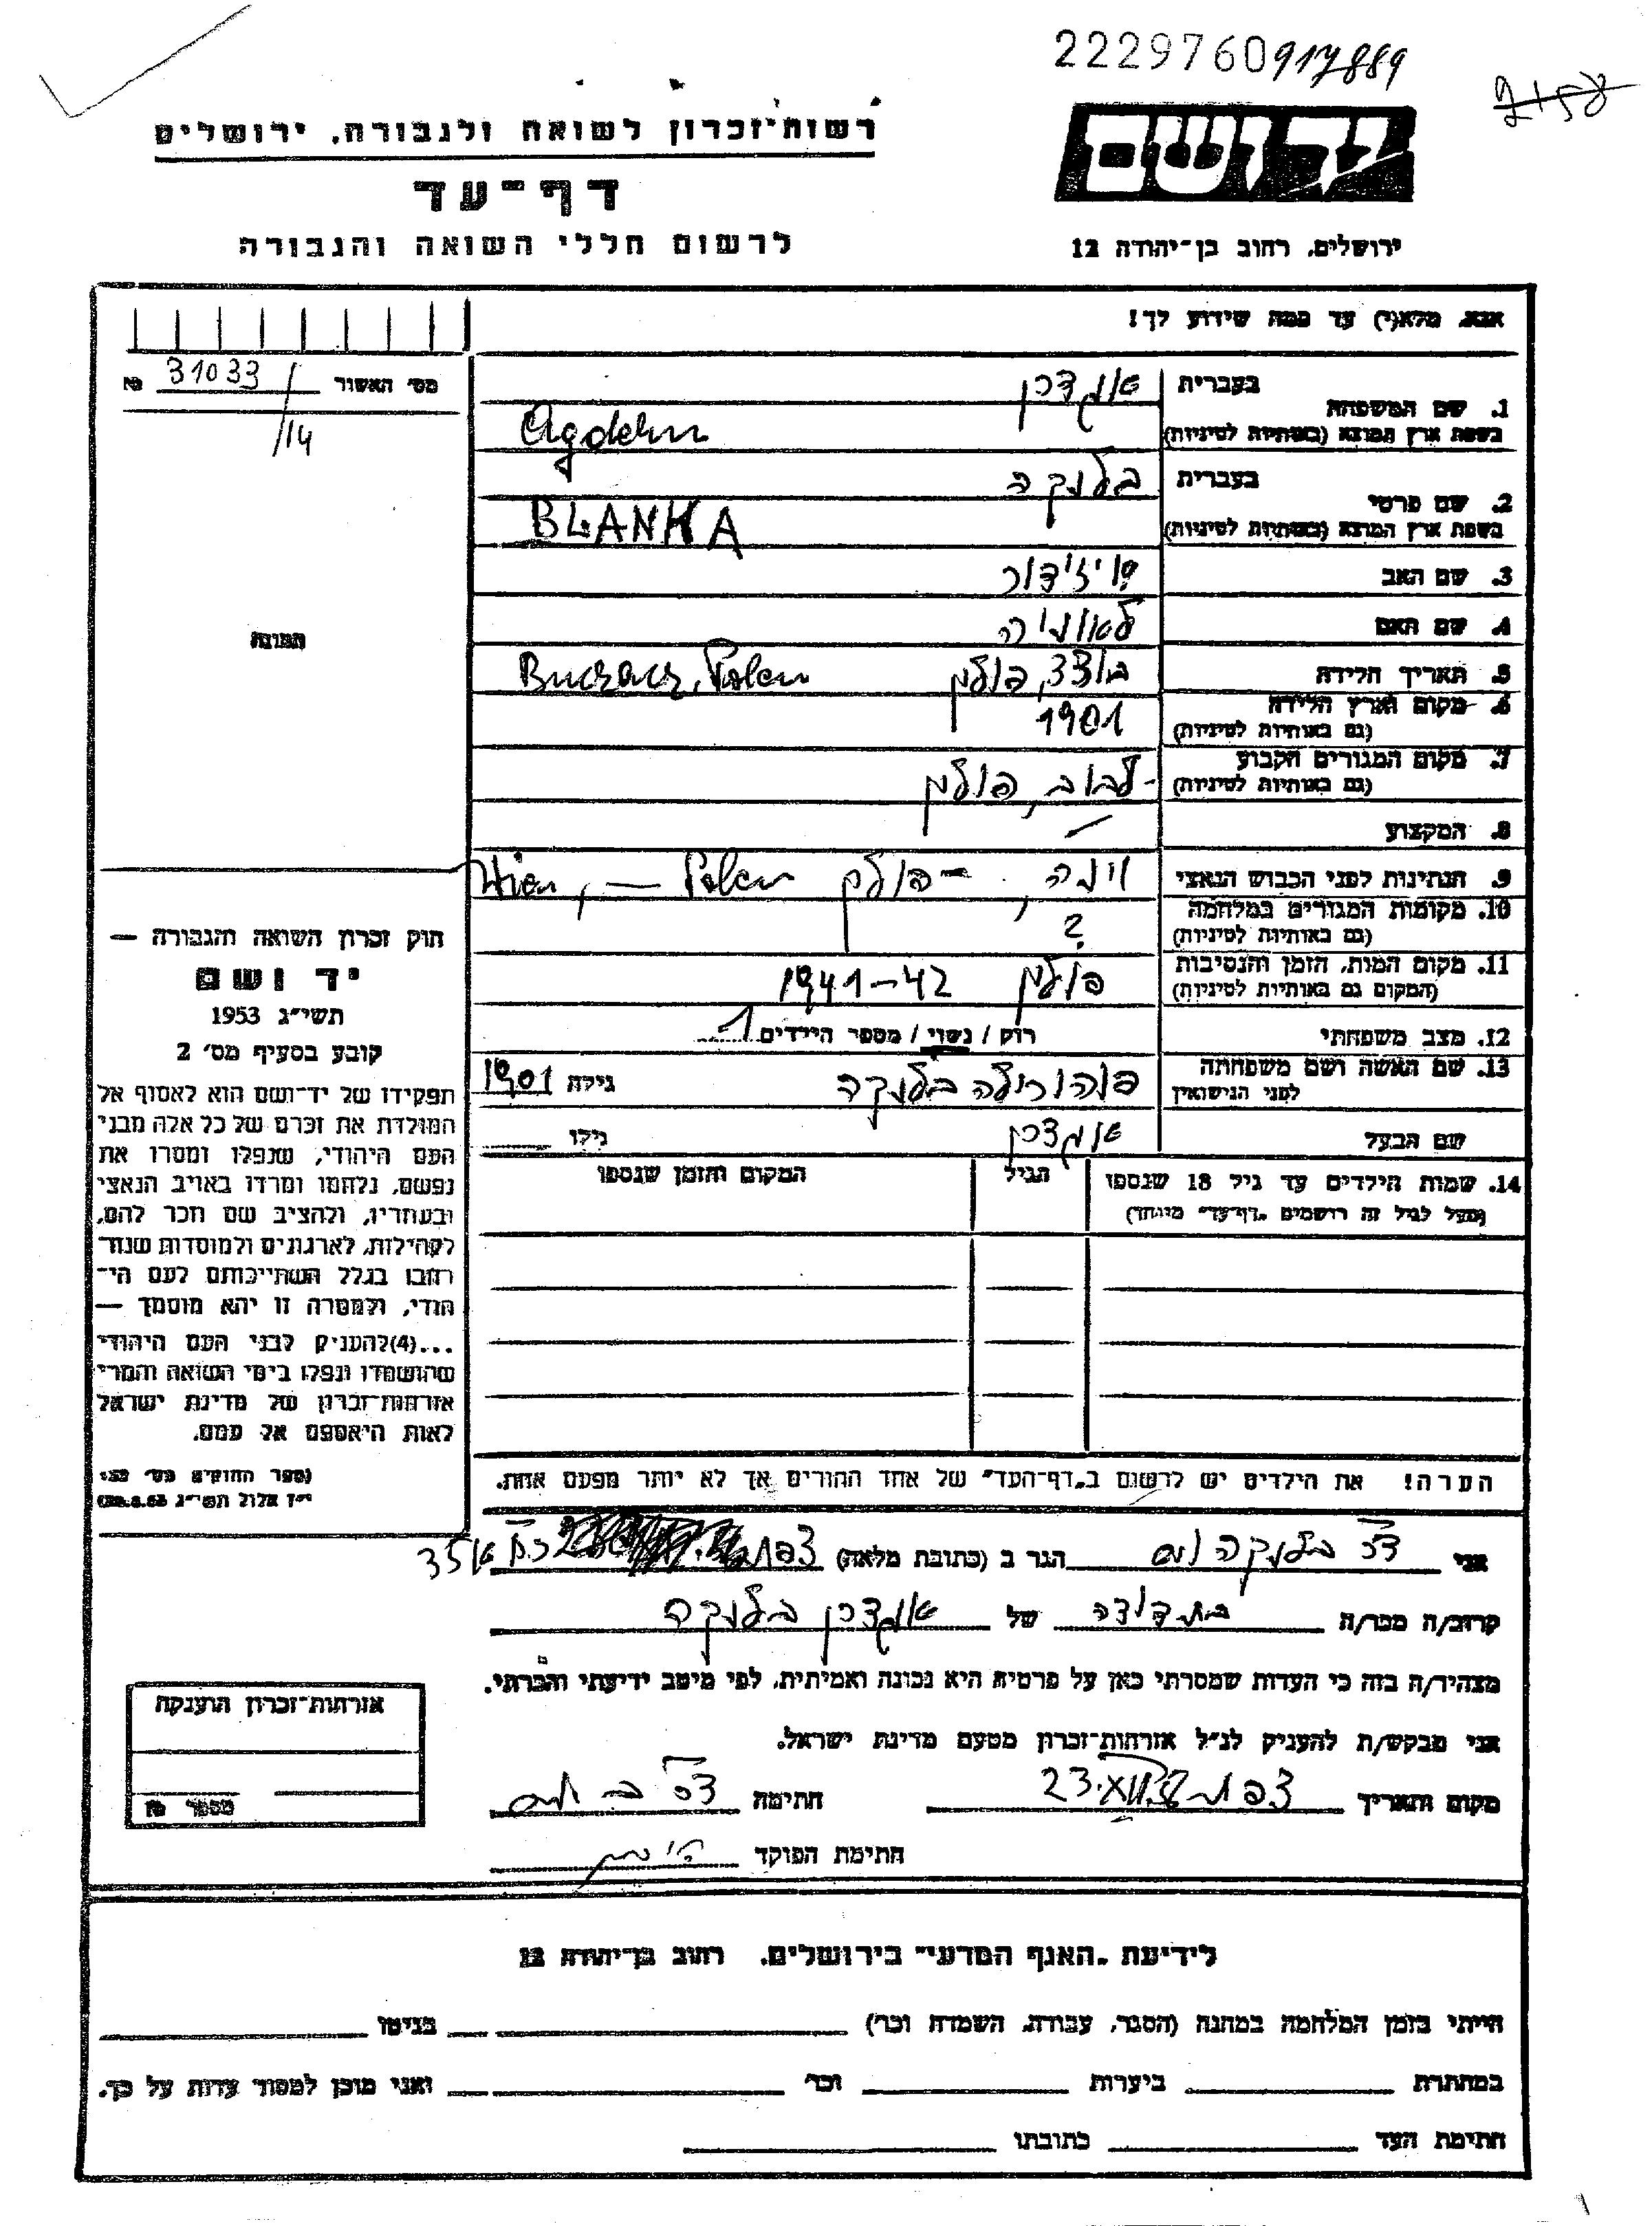 2229760 917889
2158
רשות־זכרון לשואה ולגבורה, ירושלים
יד ושם
דף־עד
לרשום חללי השואה והגבורה
ירושלים, רחוב בן־יהודה 12
אנא, מלא(י) עד כמה שידוע לך!
מס׳ האשור 31033 /14
1. שם המשפחה
בעברית
בשפת ארץ המוצא (באותיות לטיניות)
2. שם פרטי
בעברית בלנקה
בשפת ארץ המוצא (באותיות לטיניות) BLANKA
3. שם האב איזידור
4. שם האם לאוניה
5. תאריך הלידה
6. מקום וארץ הלידה
(גם באותיות לטיניות)
פולין Buczacz, Polen
1901
7. מקום המגורים הקבוע
(גם באותיות לטיניות)
לבוב, פולין
8. המקצוע
9. הנתינות לפני הכבוש הנאצי
וינה, – פולין Wien, – Polen
10. מקומות המגורים במלחמה
(גם באותיות לטיניות)
?
11. מקום המות, הזמן והנסיבות
(המקום גם באותיות לטיניות)
פולין 1941–42
12. מצב משפחתי רוק / נשוי / מספר הילדים 1
13. שם האשה ושם משפחתה
לפני הנישואין
בלנקה גילה 1901
שם הבעל גילו
14. שמות הילדים עד גיל 18 שנספו
(מעל לגיל זה רושמים „דף־עד״ מיוחד)
הגיל
המקום והזמן שנספו
הערה! את הילדים יש לרשום ב„דף־העד״ של אחד ההורים אך לא יותר מפעם אחת.
תמונה
חוק זכרון השואה והגבורה —
יד ושם
תשי״ג 1953
קובע בסעיף מס׳ 2
תפקידו של יד־ושם הוא לאסוף אל
המולדת את זכרם של כל אלה מבני
העם היהודי, שנפלו ומסרו את
נפשם, נלחמו ומרדו באויב הנאצי
ובעוזריו, ולהציב שם וזכר להם,
לקהילות, לארגונים ולמוסדות שנח־
רובו בגלל השתייכותם לעם הי־
הודי, ולמטרה זו יהא מוסמך —
...(4)להעניק לבני העם היהודי
שהושמדו ונפלו בימי השואה והמרי
אזרחות־זכרון של מדינת ישראל
לאות היאספם אל עמם.
(ספר החוקים מס׳ 132
י״ז אלול תשי״ג 28.8.53)
אני דר׳ בלנקה הגר ב (כתובת מלאה) צפת
קרוב/ה מכר/ה בת דודה של בלנקה
מצהיר/ה בזה כי העדות שמסרתי כאן על פרטיה היא נכונה ואמיתית, לפי מיטב ידיעתי והכרתי.
אני מבקש/ת להעניק לנ״ל אזרחות־זכרון מטעם מדינת ישראל.
מקום ותאריך צפת חתימה דר׳ ב
חתימת הפוקד
אזרחות־זכרון הוענקה
מספר
לידיעת „האגף המדעי״ בירושלים, רחוב בן־יהודה 12
הייתי בזמן המלחמה במחנה (הסגר, עבודה, השמדה וכר) בגיטו
במחתרת ביערות וכר׳ ואני מוכן למסור עדות על כך.
חתימת העד כתובתו